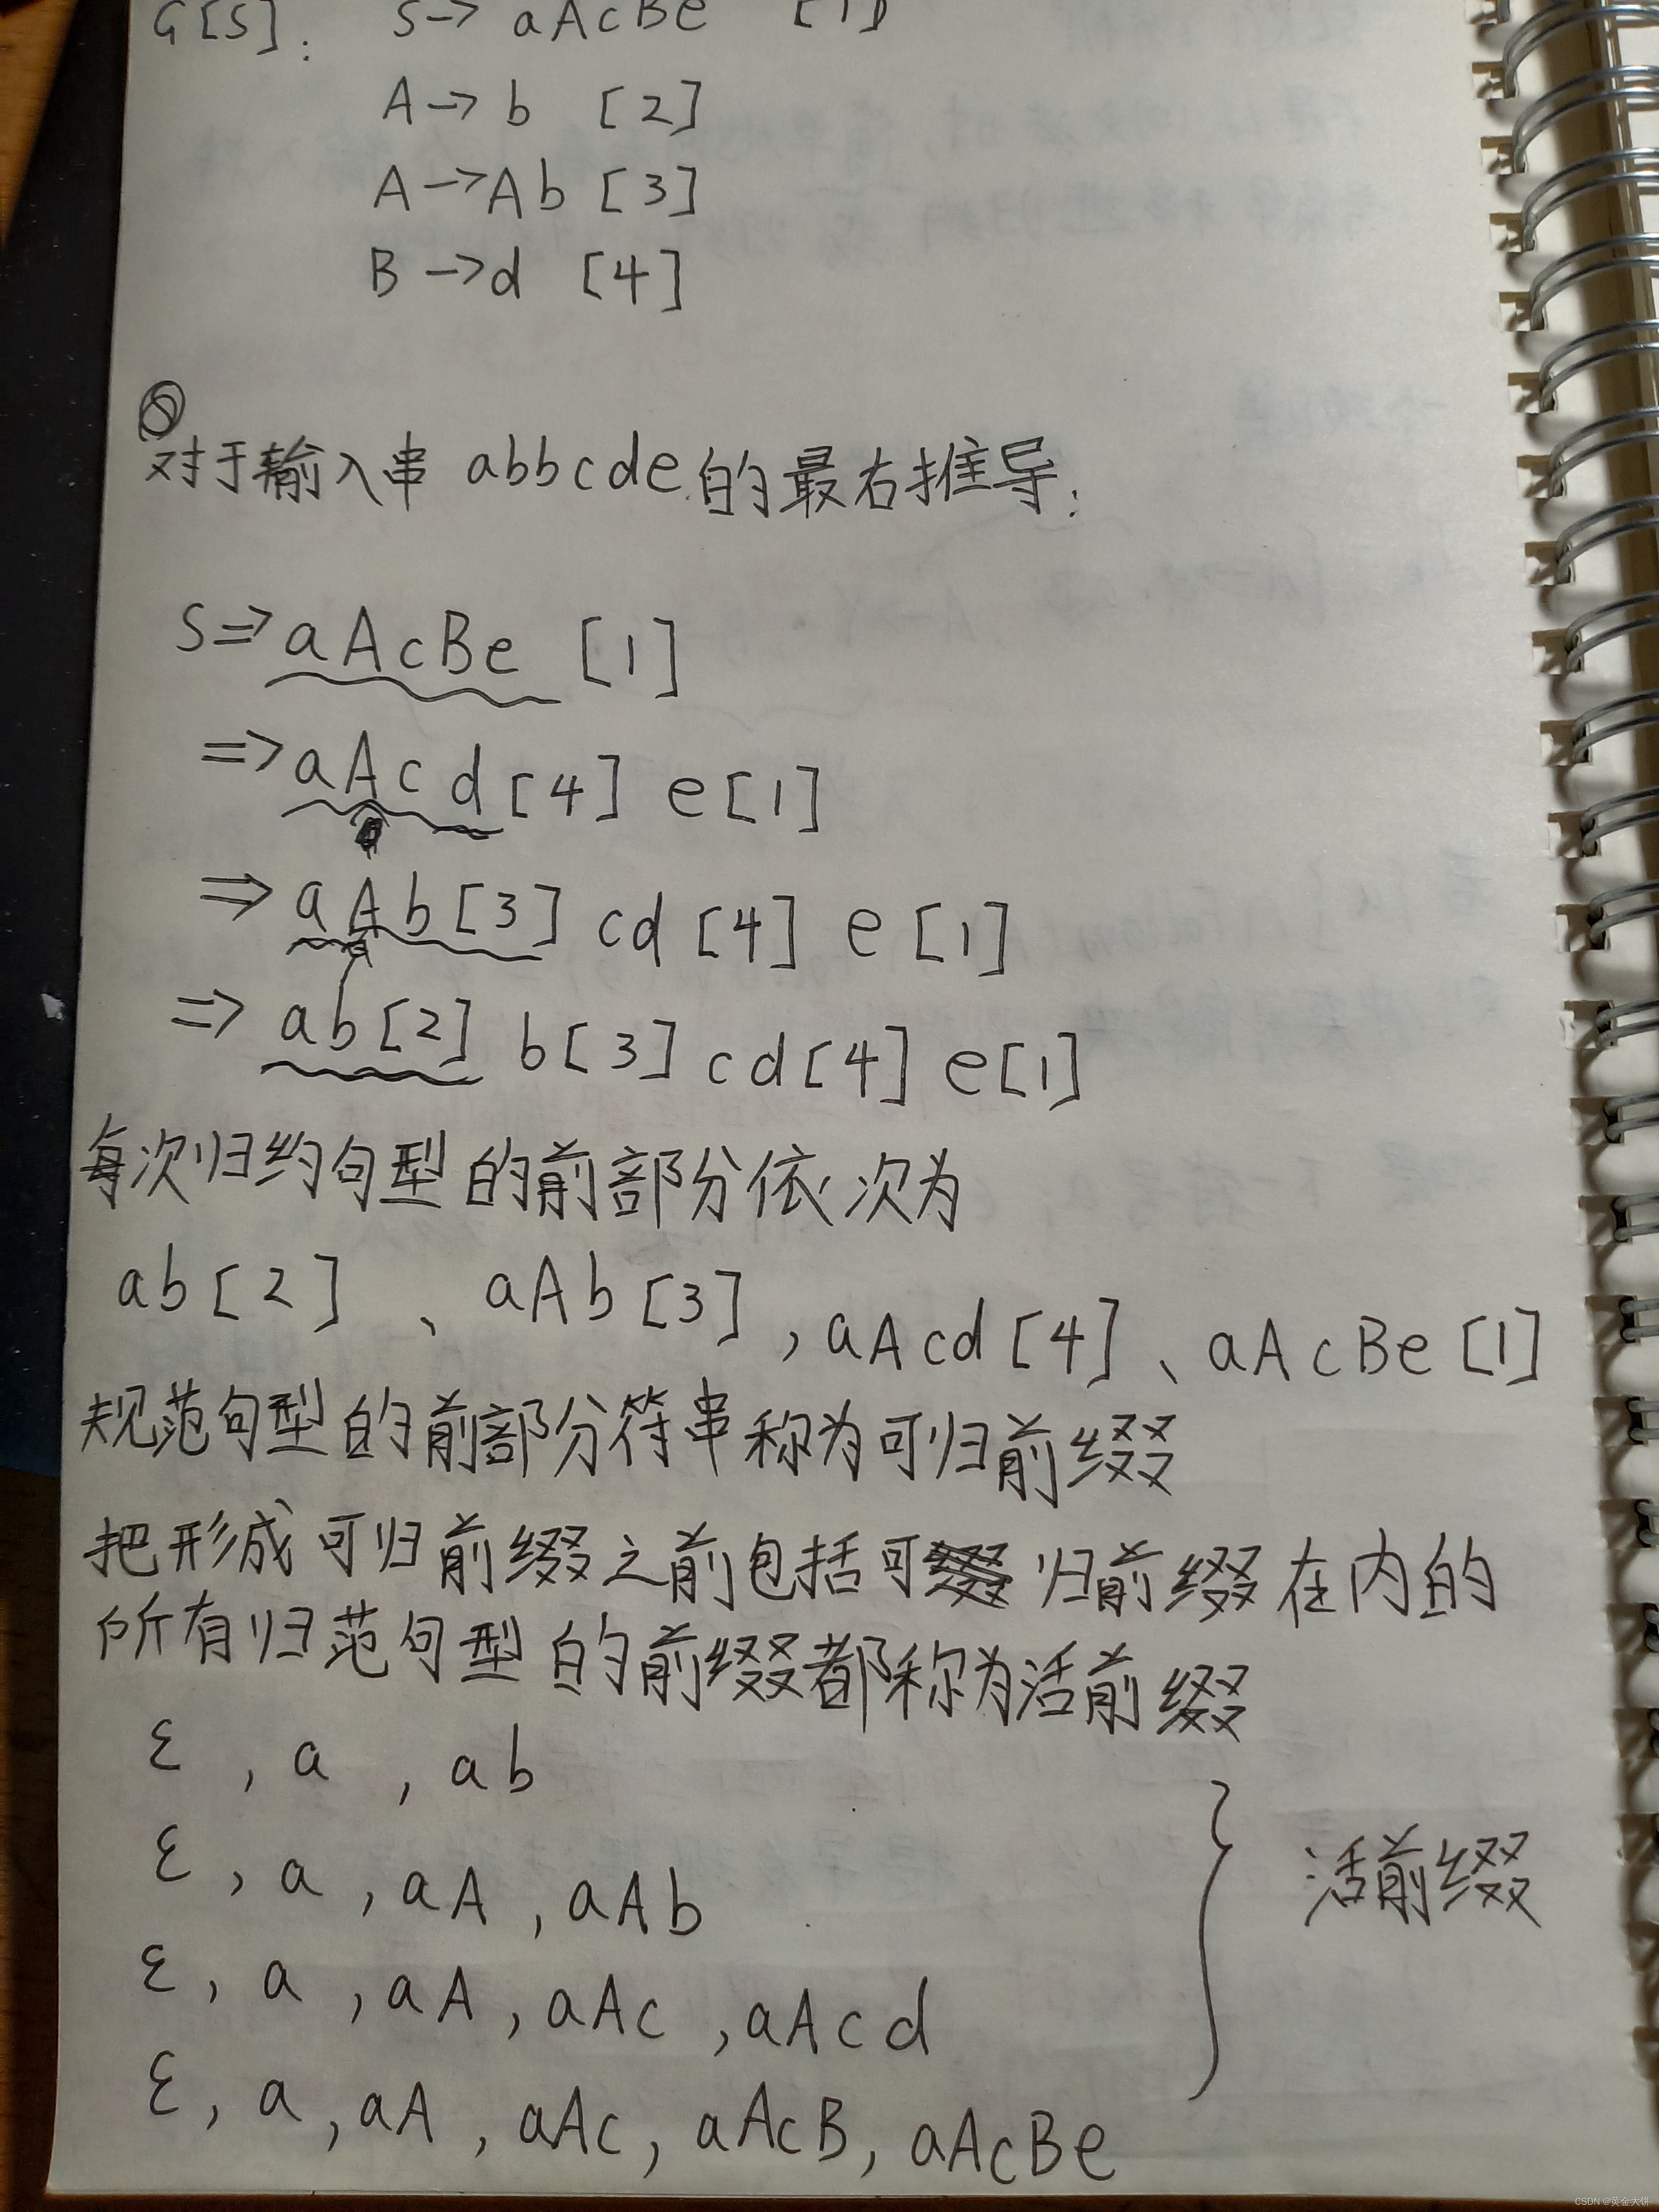 G[S]: S→ aAcBe [1]
A→ b [2]
A→Ab [3]
B→d [4]
对于输入串 abbcde 的最右推导:
S⇒aAcBe [1]
⇒aAcd[4] e[1]
⇒aAb[3] cd[4] e[1]
⇒ab[2] b[3] cd[4] e[1]
每次归约句型的前部分依次为
ab[2]、aAb[3],aAcd[4]、aAcBe[1]
规范句型的前部分符串称为可归前缀
把形成可归前缀之前包括可归前缀在内的
所有归范句型的前缀都称为活前缀
ε,a,ab
ε,a,aA,aAb
活前缀
ε,a,aA,aAc,aAcd
ε,a,aA,aAc,aAcB,aAcBe
CSDN @黄金大饼